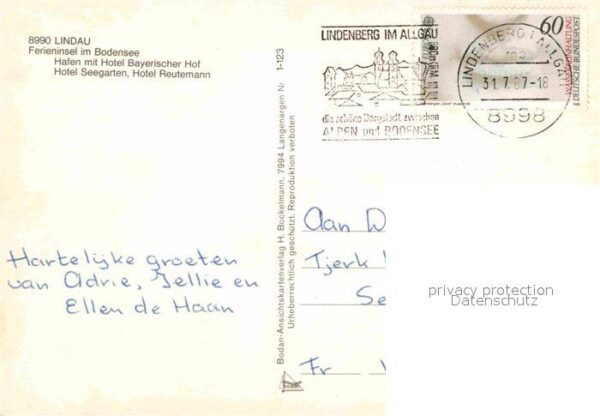 8990 LINDAU
Ferieninsel im Bodensee
Hafen mit Hotel Bayerischer Hof
Hotel Seegarten, Hotel Reutemann
Hartelijke groeten
van Adrie, Jellie en
Ellen de Haan
Bodan-Ansichtskartenverlag H. Bockelmann, 7994 Langenargen Nr 1-123
Urheberrechtlich geschützt. Reproduktion verboten
LINDENBERG IM ALLGÄU
die schöne Bergstadt zwischen
ALPEN und BODENSEE
60
DEUTSCHE BUNDESPOST
LINDENBERG I ALLGÄU
31.7.87-18
8998
Aan
Tjerk
Fr
privacy protection
Datenschutz